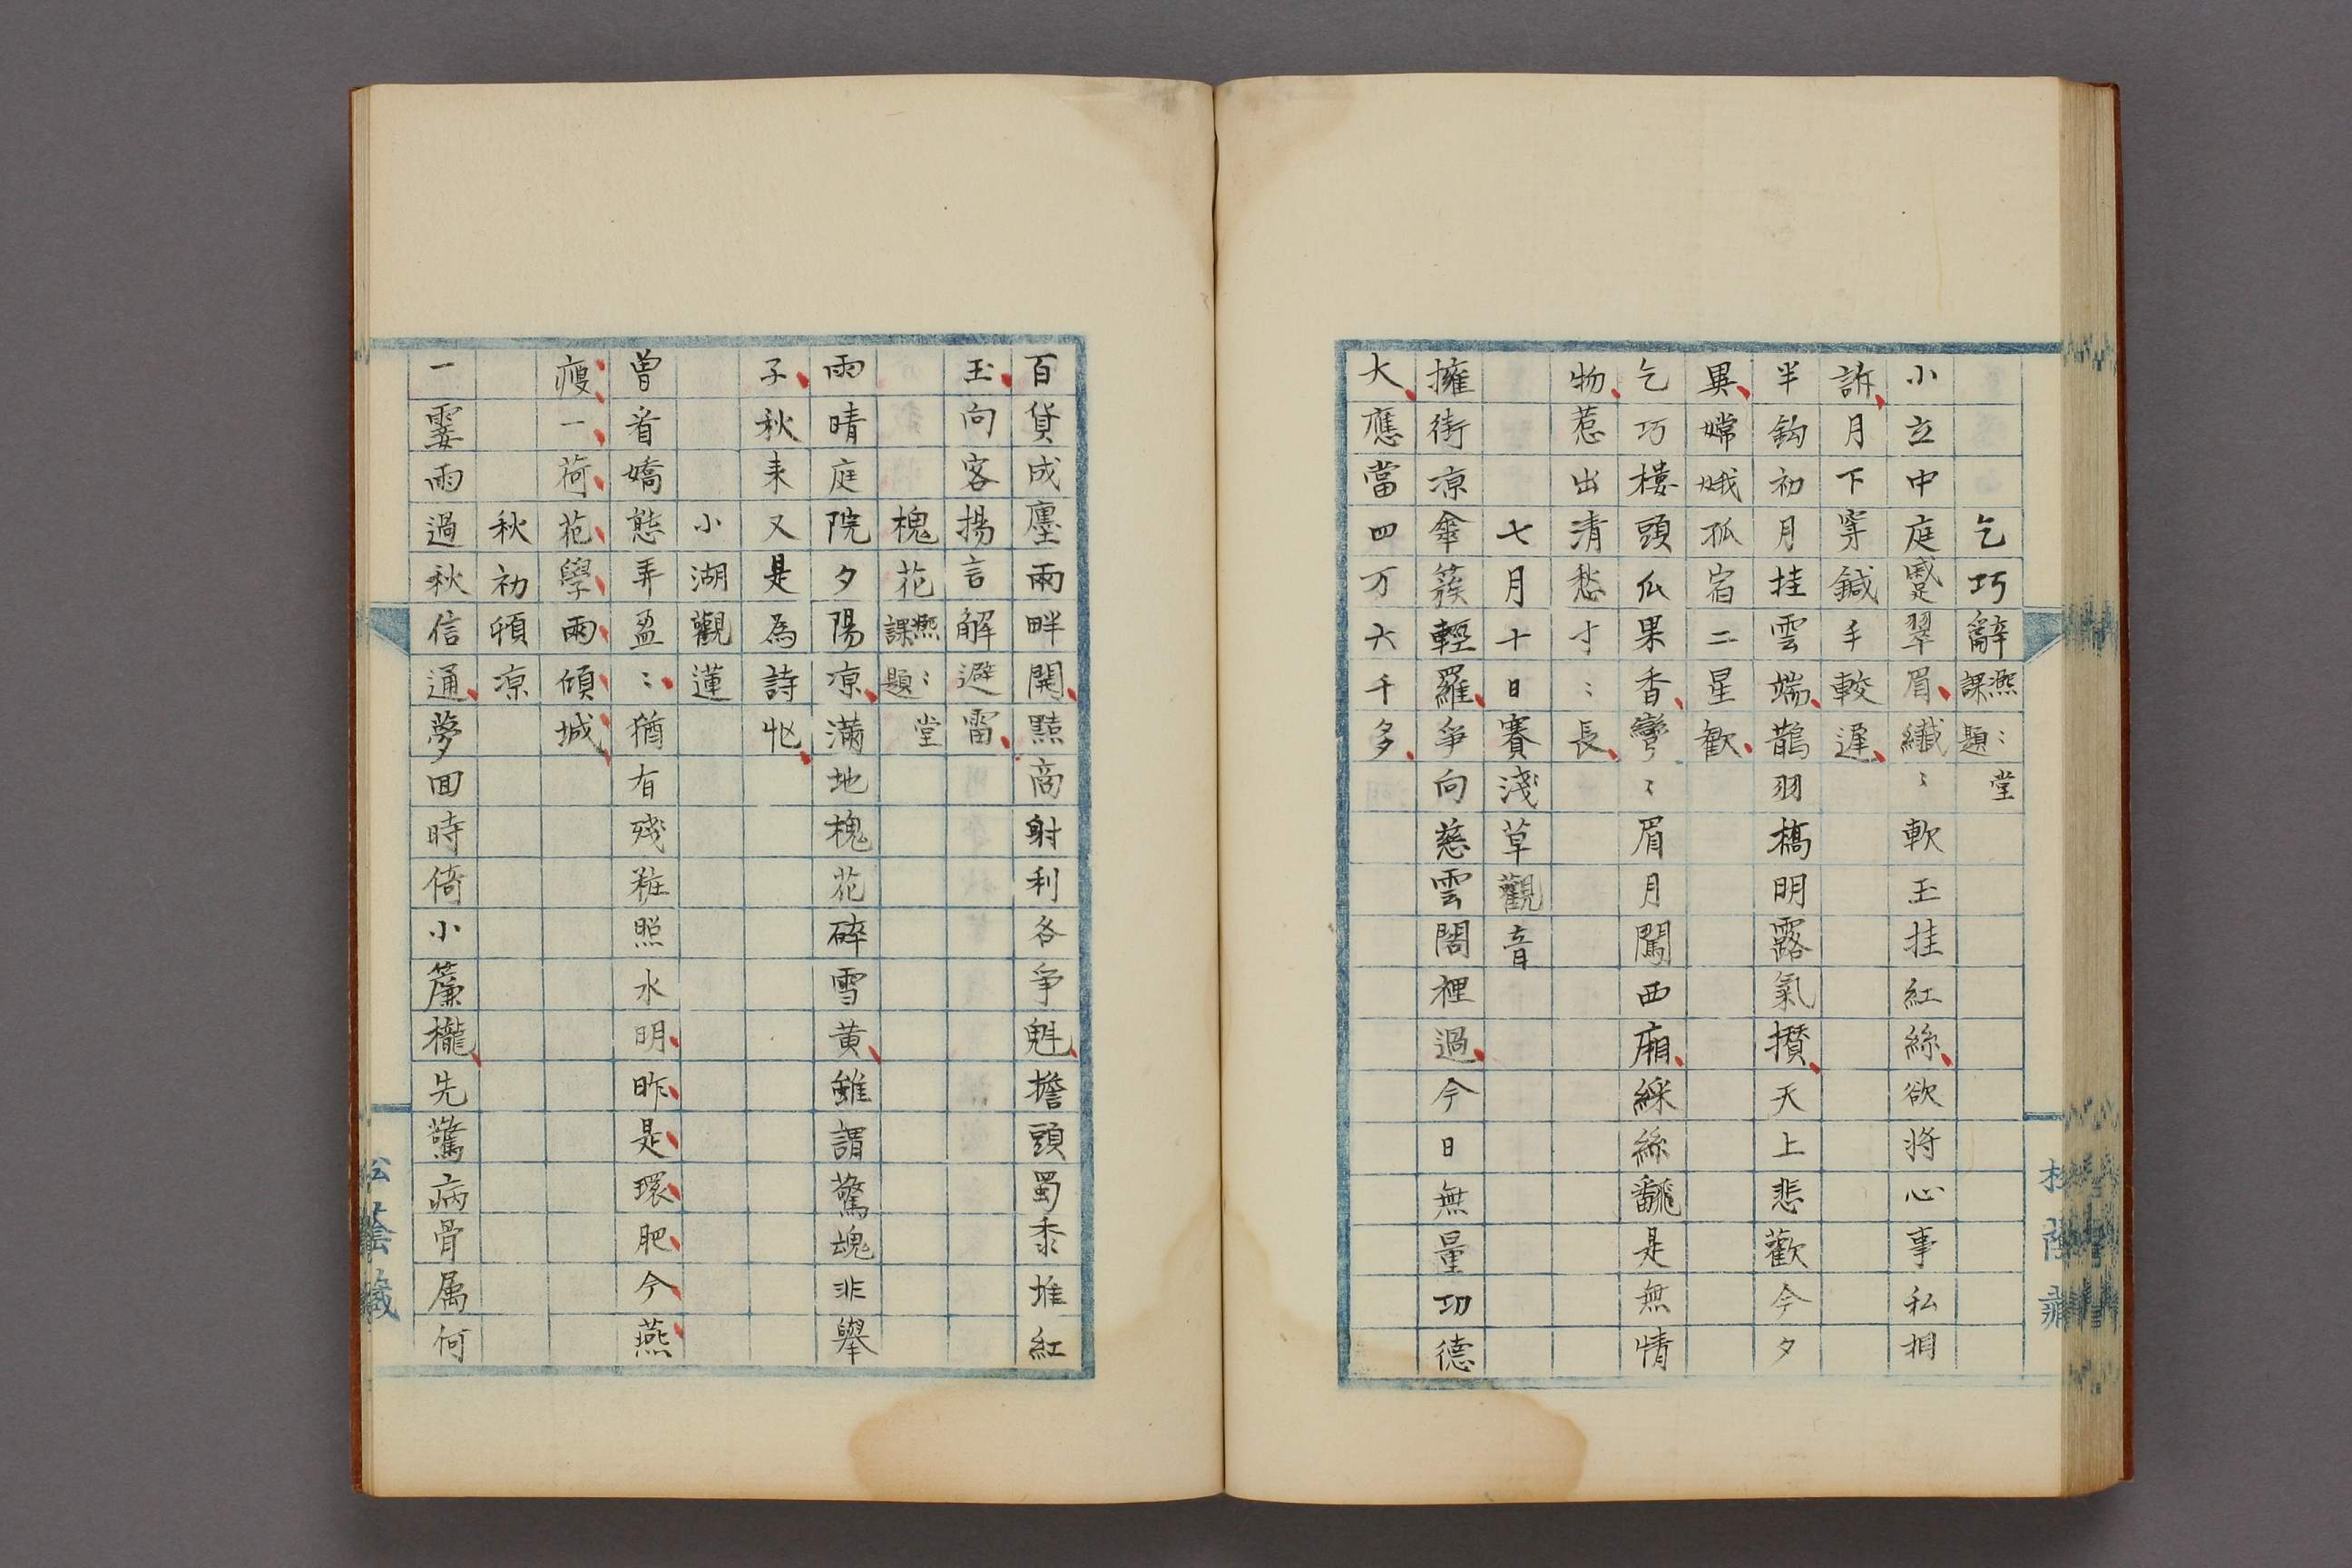 乞巧辭 凞〻堂課題
小立中庭蹙翠眉纖〻軟玉挂紅絲欲将心事私相
訴月下穿鍼手較遲
半鈎初月挂雲端鵲羽橋明露氣攅天上悲歡今夕
異嫦娥孤宿二星歡
乞巧樓頭瓜果香彎〻眉月闖西廂綵絲飜是無情
物惹出清愁寸〻長
七月十日賽淺草觀音
擁街凉傘簇輕羅爭向慈雲閣裡過今日無量功德
大應當四万六千多
百貨成廛兩畔開黠商射利各爭魁擔頭蜀黍堆紅
玉向客揚言解避雷
槐花 凞〻堂課題
雨晴庭院夕陽凉滿地槐花碎雪黄雖謂驚魂非舉
子秋来又是為詩忙
小湖觀蓮
曽看嬌態弄盈〻猶有殘粧照水明昨是環肥今燕
瘦一荷花學兩傾城
秋初頓凉
一霎雨過秋信通夢回時倚小簾櫳先驚病骨属何
松蔭蔵